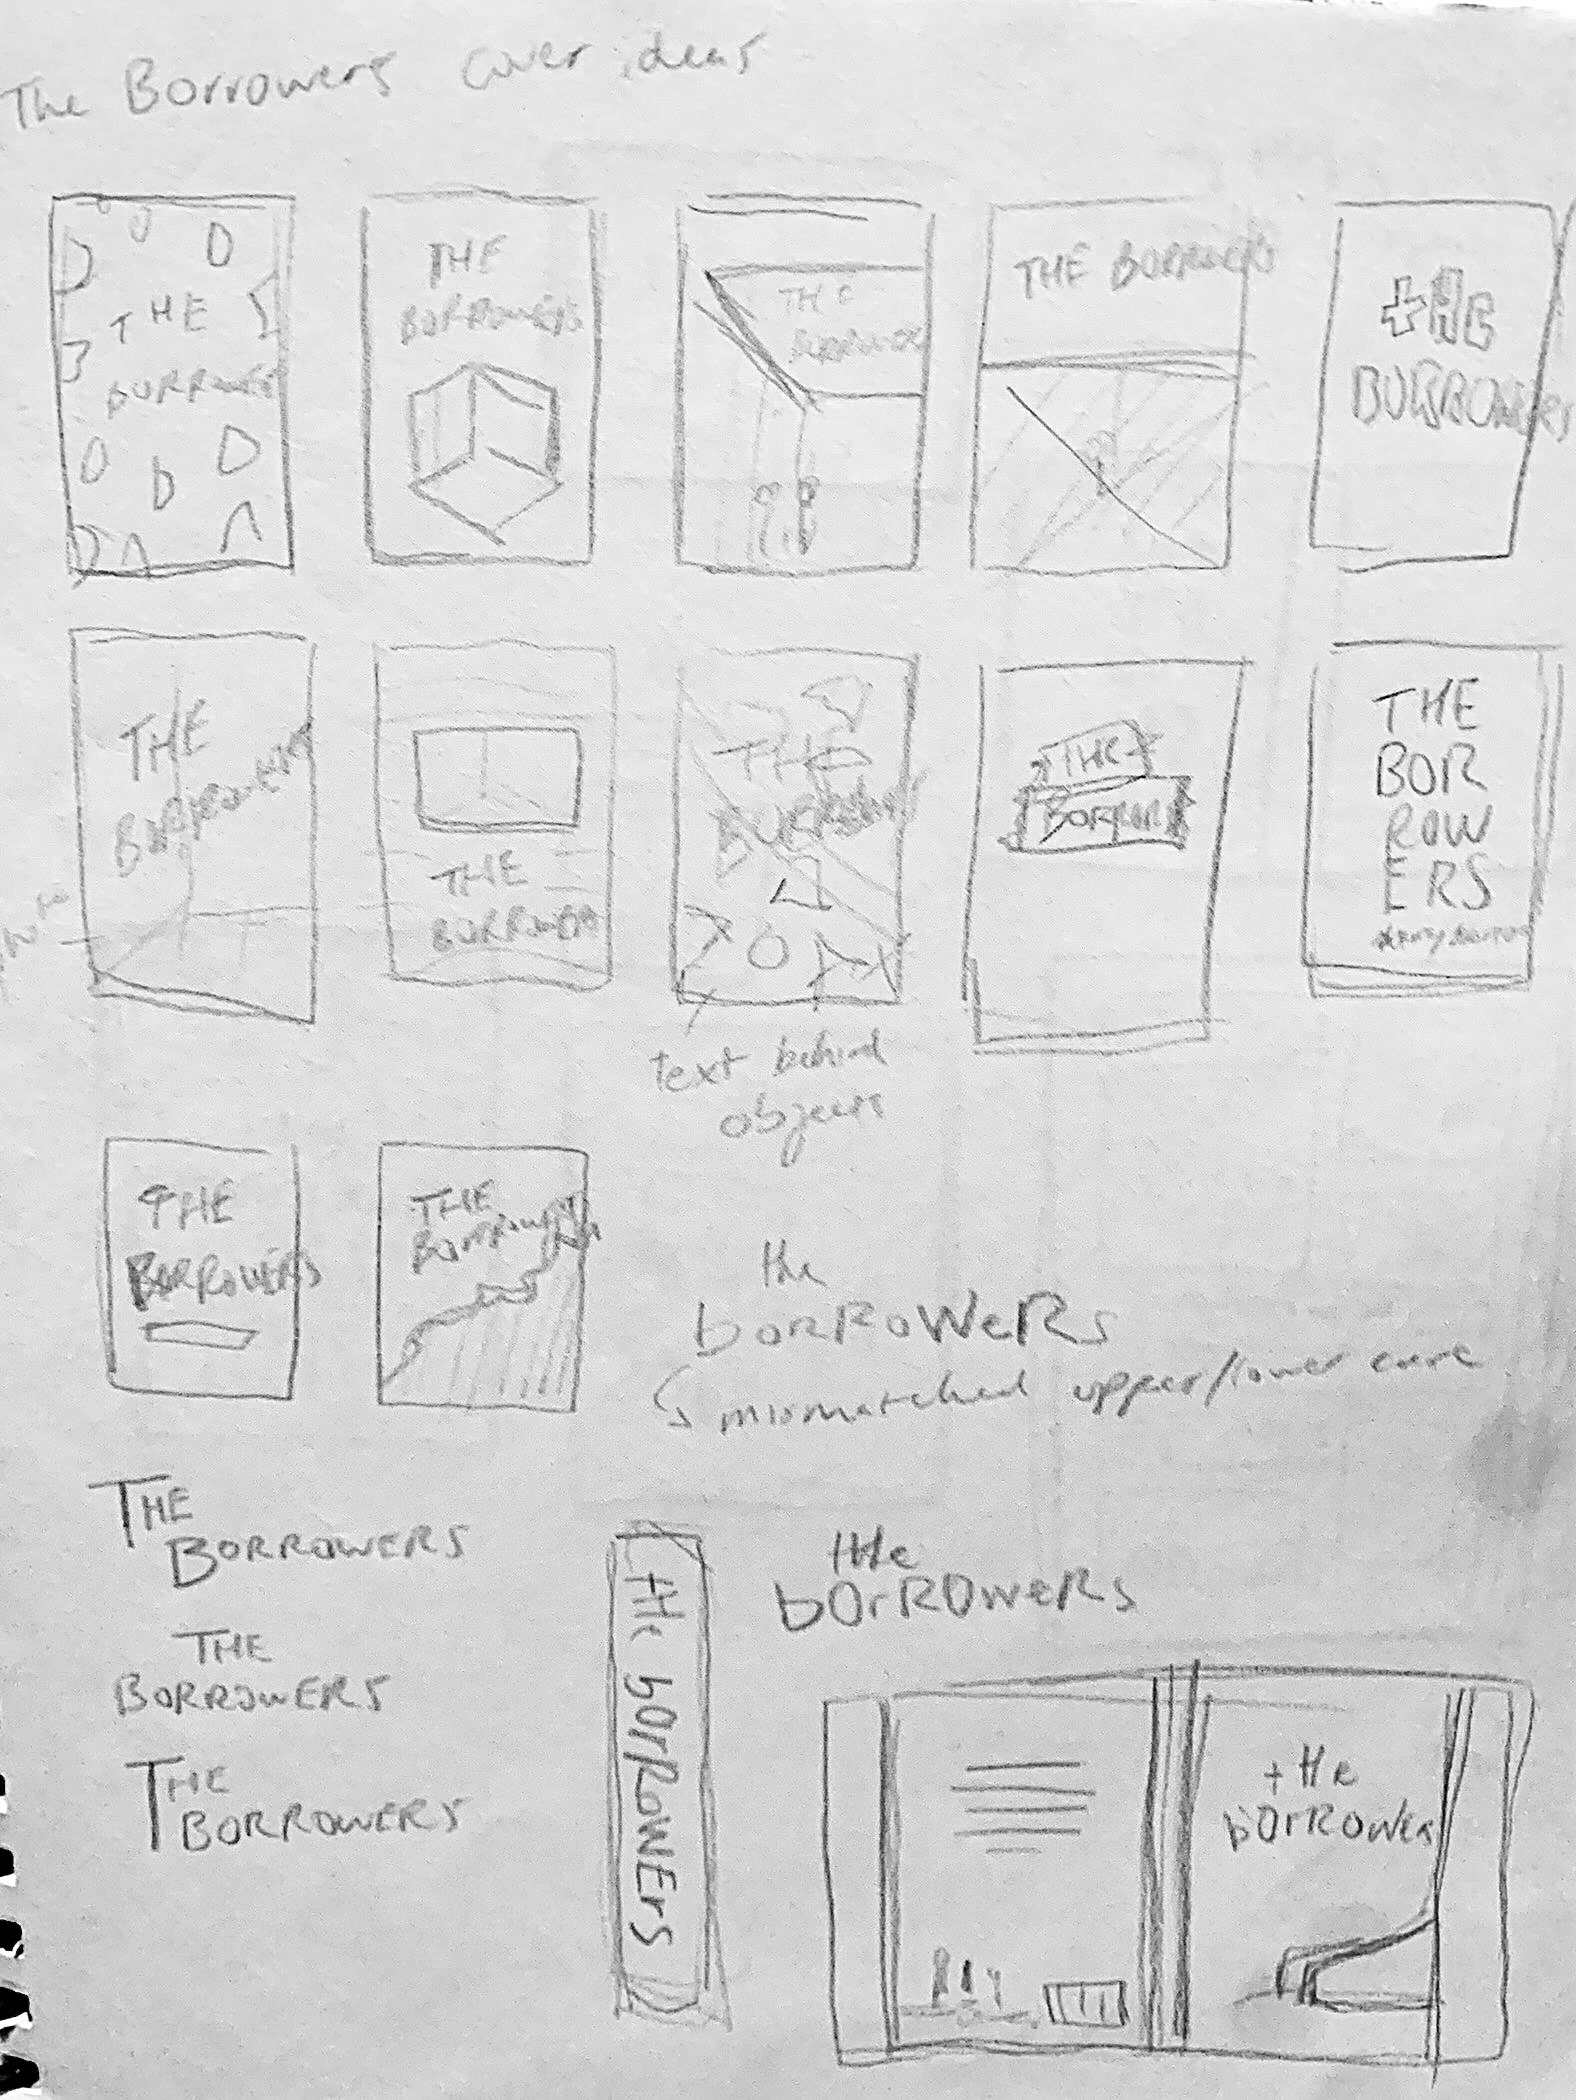 The Borrowers cover ideas
THE
BORROWERS
THE
BORROWERS
THE
BORROWERS
THE BORROWERS
tHe
BORROWERS
THE
BORROWERS
THE
BORROWERS
THE
BORROWERS
text behind
objects
THE
BORROWERS
THE
BOR
ROW
ERS
THE
BORROWERS
THE
BORROWERS
the
borRoWeRs
mismatched upper/lower case
THE
BORROWERS
THE
BORROWERS
THE
BORROWERS
tHe bOrRoWErS
tHe
bOrROweRs
tHe
bOrROweR